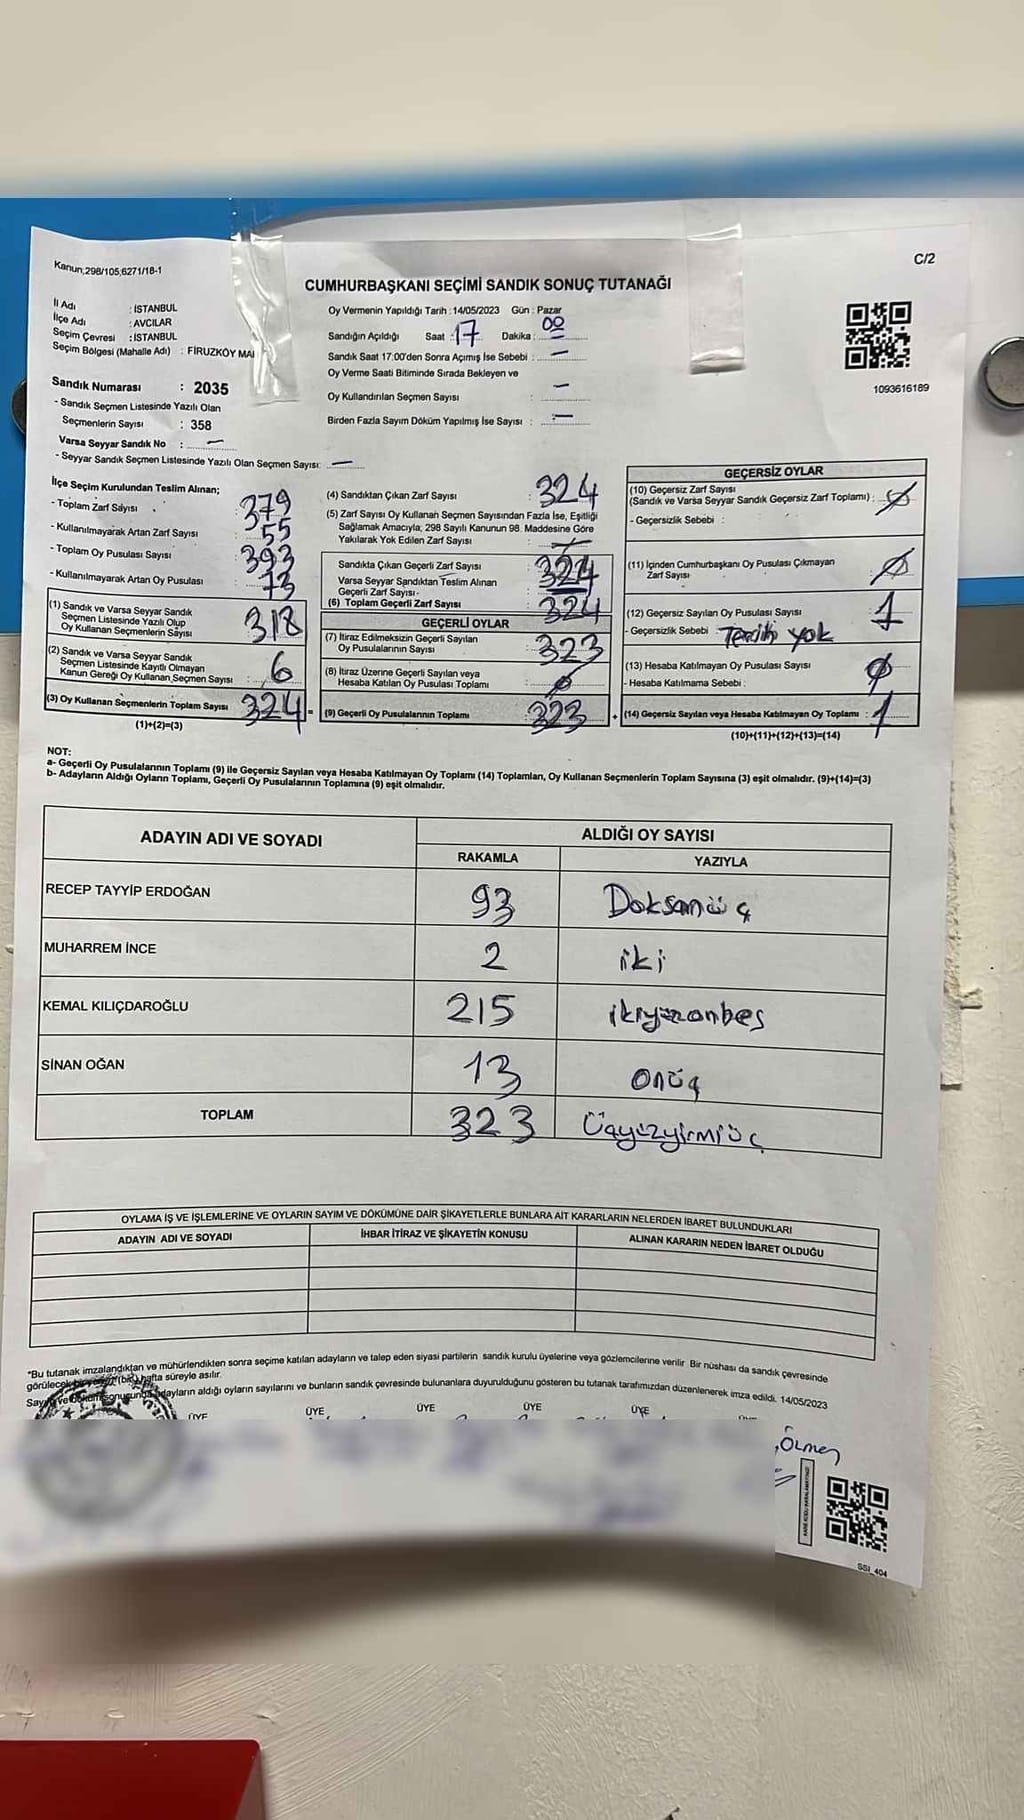 Kanun;298/105,6271/18-1
C/2
CUMHURBAŞKANI SEÇİMİ SANDIK SONUÇ TUTANAĞI
İl Adı : İSTANBUL
İlçe Adı : AVCILAR
Seçim Çevresi : İSTANBUL
Seçim Bölgesi (Mahalle Adı) : FİRUZKÖY MA
Sandık Numarası : 2035
- Sandık Seçmen Listesinde Yazılı Olan
Seçmenlerin Sayısı : 358
Varsa Seyyar Sandık No : —
- Seyyar Sandık Seçmen Listesinde Yazılı Olan Seçmen Sayısı: —
Oy Vermenin Yapıldığı Tarih : 14/05/2023 Gün : Pazar
Sandığın Açıldığı Saat : 17 Dakika : 00
Sandık Saat 17:00'den Sonra Açımış İse Sebebi : —
Oy Verme Saati Bitiminde Sırada Bekleyen ve
Oy Kullandırılan Seçmen Sayısı : —
Birden Fazla Sayım Döküm Yapılmış İse Sayısı : —
1093616189
İlçe Seçim Kurulundan Teslim Alınan;
- Toplam Zarf Sayısı : 379
- Kullanılmayarak Artan Zarf Sayısı : 55
- Toplam Oy Pusulası Sayısı : 393
- Kullanılmayarak Artan Oy Pusulası : 73
(1) Sandık ve Varsa Seyyar Sandık
Seçmen Listesinde Yazılı Olup
Oy Kullanan Seçmenlerin Sayısı : 318
(2) Sandık ve Varsa Seyyar Sandık
Seçmen Listesinde Kayıtlı Olmayan
Kanun Gereği Oy Kullanan Seçmen Sayısı : 6
(3) Oy Kullanan Seçmenlerin Toplam Sayısı : 324
(1)+(2)=(3)
(4) Sandıktan Çıkan Zarf Sayısı : 324
(5) Zarf Sayısı Oy Kullanan Seçmen Sayısından Fazla İse, Eşitliği
Sağlamak Amacıyla; 298 Sayılı Kanunun 98. Maddesine Göre
Yakılarak Yok Edilen Zarf Sayısı : —
Sandıkta Çıkan Geçerli Zarf Sayısı : 324
Varsa Seyyar Sandıktan Teslim Alınan
Geçerli Zarf Sayısı -
(6) Toplam Geçerli Zarf Sayısı : 324
GEÇERLİ OYLAR
(7) İtiraz Edilmeksizin Geçerli Sayılan
Oy Pusulalarının Sayısı : 323
(8) İtiraz Üzerine Geçerli Sayılan veya
Hesaba Katılan Oy Pusulası Toplamı : Ø
(9) Geçerli Oy Pusulalarının Toplamı : 323
GEÇERSİZ OYLAR
(10) Geçersiz Zarf Sayısı
(Sandık ve Varsa Seyyar Sandık Geçersiz Zarf Toplamı) : Ø
- Geçersizlik Sebebi :
(11) İçinden Cumhurbaşkanı Oy Pusulası Çıkmayan
Zarf Sayısı : Ø
(12) Geçersiz Sayılan Oy Pusulası Sayısı : 1
- Geçersizlik Sebebi : Tercih yok
(13) Hesaba Katılmayan Oy Pusulası Sayısı : Ø
- Hesaba Katılmama Sebebi :
(14) Geçersiz Sayılan veya Hesaba Katılmayan Oy Toplamı : 1
(10)+(11)+(12)+(13)=(14)
NOT:
a- Geçerli Oy Pusulalarının Toplamı (9) ile Geçersiz Sayılan veya Hesaba Katılmayan Oy Toplamı (14) Toplamları, Oy Kullanan Seçmenlerin Toplam Sayısına (3) eşit olmalıdır. (9)+(14)=(3)
b- Adayların Aldığı Oyların Toplamı, Geçerli Oy Pusulalarının Toplamına (9) eşit olmalıdır.
ADAYIN ADI VE SOYADI
ALDIĞI OY SAYISI
RAKAMLA YAZIYLA
RECEP TAYYİP ERDOĞAN 93 Doksanüç
MUHARREM İNCE 2 iki
KEMAL KILIÇDAROĞLU 215 ikiyüzonbeş
SİNAN OĞAN 13 onüç
TOPLAM 323 Üçyüzyirmiüç
OYLAMA İŞ VE İŞLEMLERİNE VE OYLARIN SAYIM VE DÖKÜMÜNE DAİR ŞİKAYETLERLE BUNLARA AİT KARARLARIN NELERDEN İBARET BULUNDUKLARI
ADAYIN ADI VE SOYADI İHBAR İTİRAZ VE ŞİKAYETİN KONUSU ALINAN KARARIN NEDEN İBARET OLDUĞU
"Bu tutanak imzalandıktan ve mühürlendikten sonra seçime katılan adayların ve talep eden siyasi partilerin sandık kurulu üyelerine veya gözlemcilerine verilir Bir nüshası da sandık çevresinde
görülecek bir yere (bir) hafta süreyle asılır.
Sayım ve döküm sonucunda adayların aldığı oyların sayılarını ve bunların sandık çevresinde bulunanlara duyurulduğunu gösteren bu tutanak tarafımızdan düzenlenerek imza edildi. 14/05/2023
ÜYE ÜYE ÜYE ÜYE ÜYE
Ölmez
SSI_404